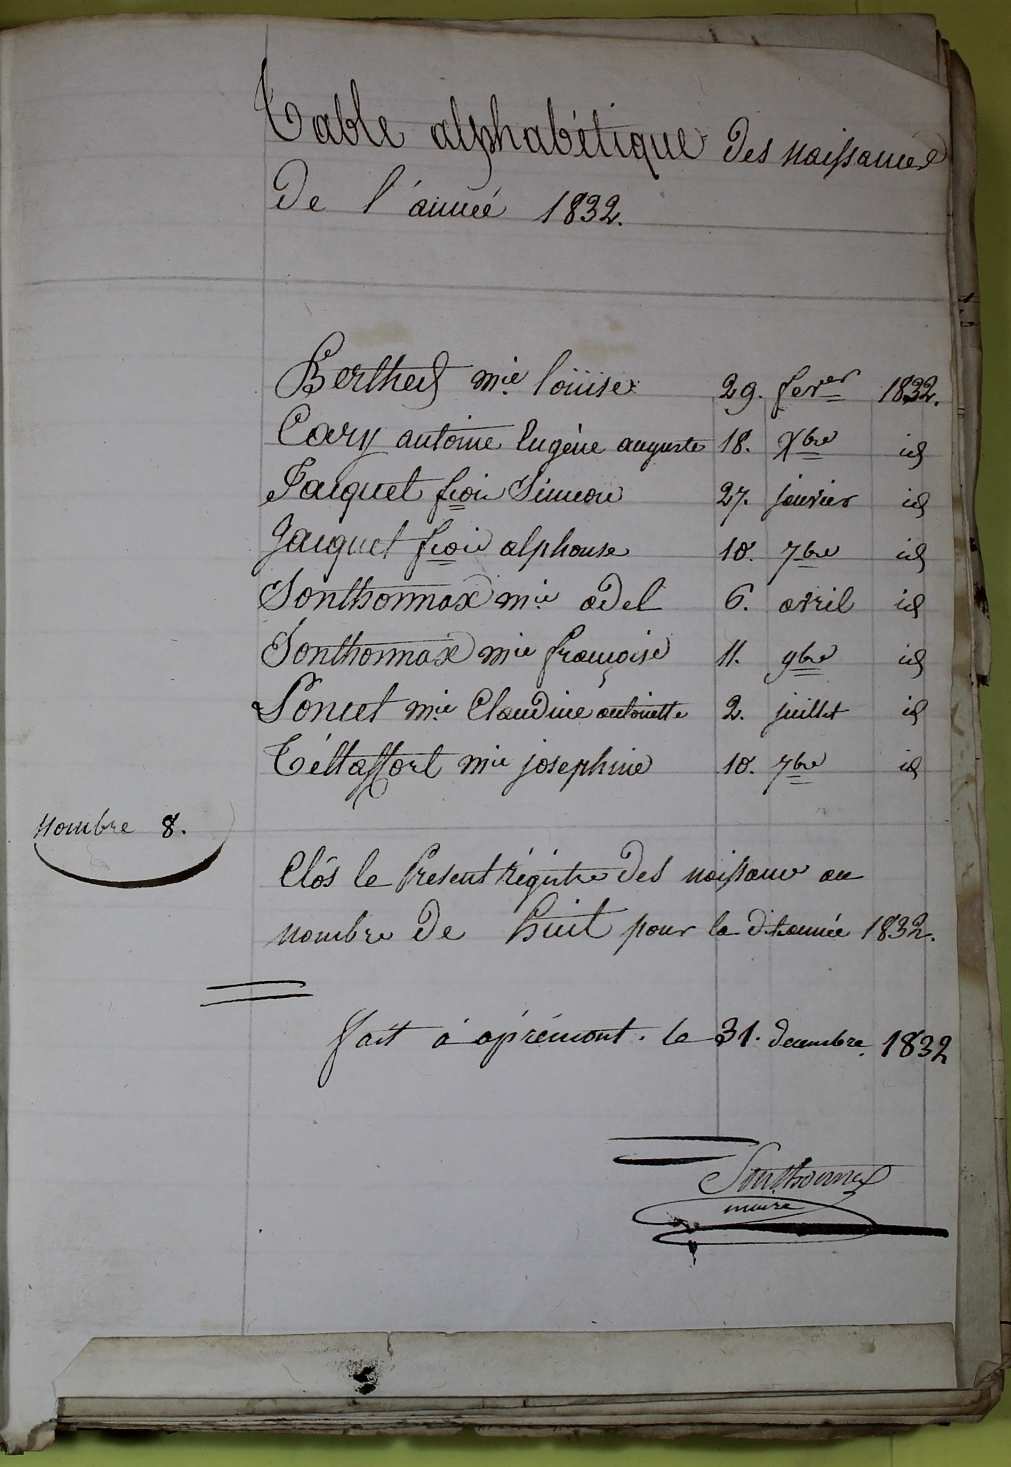 Table alphabétique des naissances
de l'année 1832.
Berthet mie louise 29. fevrer 1832.
Cary antoine Eugéne auguste 18. Xbre id
Jacquet frois Simeon 27. janvier id
Jacquet frois alphonse 10. 7bre id
Sonthonnax mie adel 6. avril id
Sonthonnax mie françoise 11. 9bre id
Poncet mie Claudine antoinette 2. juillet id
mie josephine 10. 7bre id
Nombre 8.
Clôs le Présent régistre des naissance au
nombre de huit pour la dite année 1832.
fait à aprémont. le 31. decembre. 1832
Sonthonnax
maire